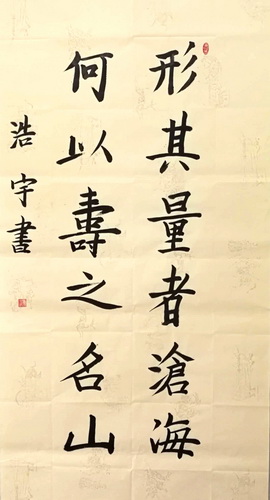 形其量者滄海
何以壽之名山
浩宇書